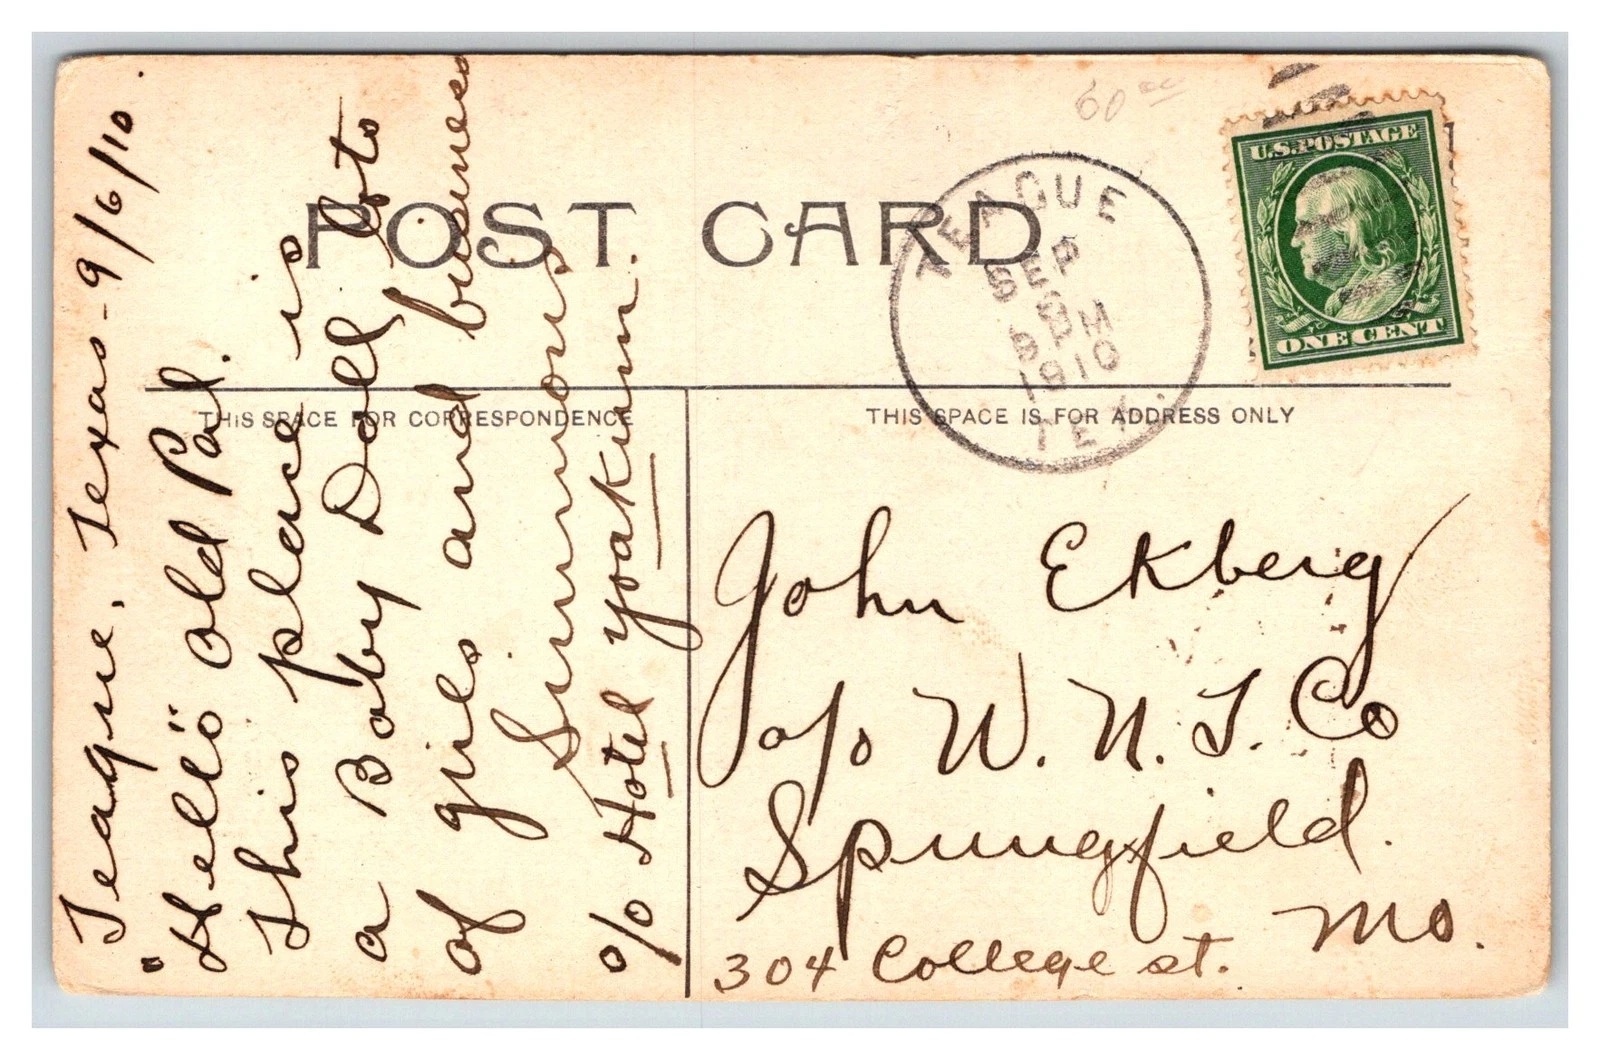 POST CARD
60ºº
U.S. POSTAGE
ONE CENT
TEAGUE
SEP
8
8 PM
1910
TEX.
THIS SPACE FOR CORRESPONDENCE
THIS SPACE IS FOR ADDRESS ONLY
Teague. Texas - 9/6/10.
"Hello" Old Pal.
This place is
a Baby Doll lots
of girls and business
Simmons
c/o Hotel Yoakum.
John Ekberg
c/o W. N. T. Co
Springfield.
Mo.
304 College st.